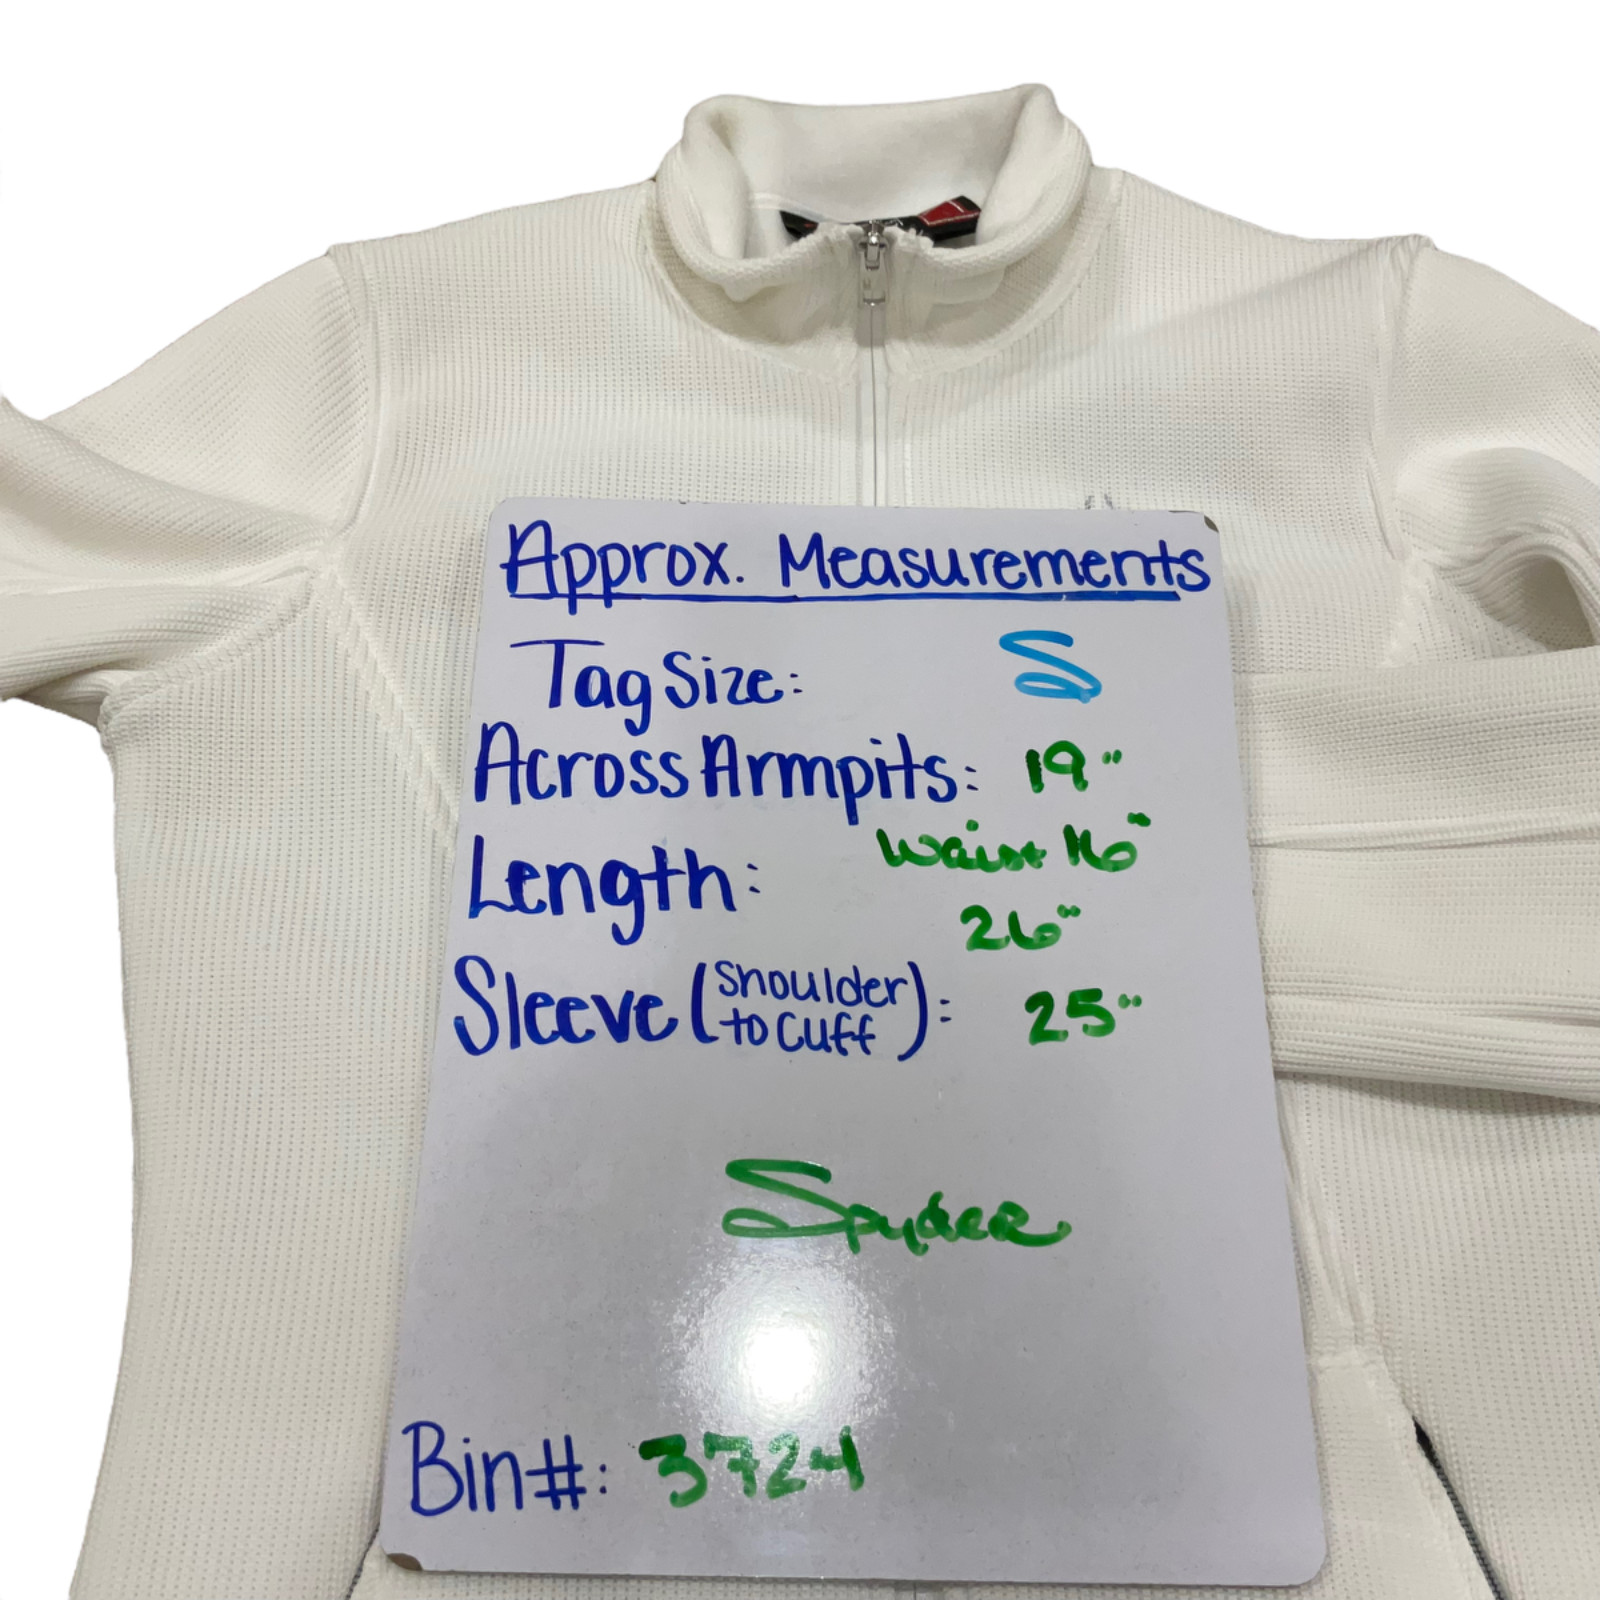 Approx. Measurements
Tag Size: S
Across Armpits: 19"
Waist 16"
Length: 26"
Sleeve (Shoulder to Cuff): 25"
Spyder
Bin#: 3724